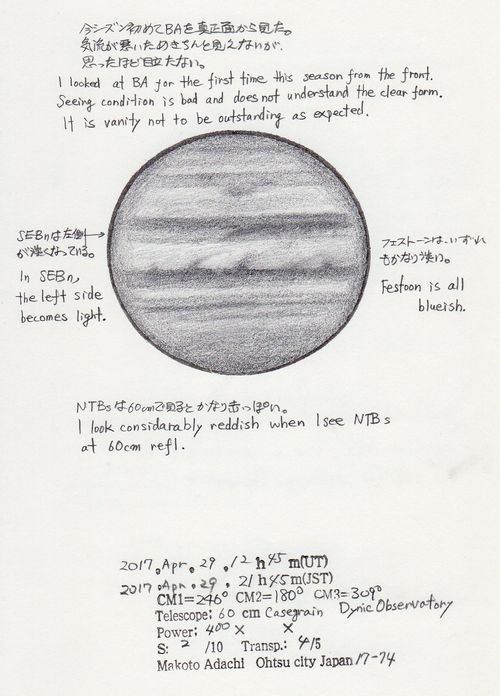 今シーズン初めてBAを真正面から見た。
気流が悪いためきちんと見えないが、
思ったほど目立たない。
I looked at BA for the first time this season from the front.
Seeing condition is bad and does not understand the clear form.
It is vanity not to be outstanding as expected.
SEBnは左側→
が淡くなっている。
In SEBn,
the left side
becomes light.
フェストーンは、いずれ
もかなり淡い。
Festoon is all
blueish.
NTBsは60cmで見るとかなり赤っぽい。
I look considarably reddish when I see NTBs
at 60cm refl.
2017.Apr.29.12h45m(UT)
2017.Apr.29.21h45m(JST)
CM1=246° CM2=180° CM3=309°
Telescope: 60 cm Casegrain Dynic Observatory
Power: 400× ×
S: 2 /10 Transp.: 4/5
Makoto Adachi Ohtsu city Japan 17-74